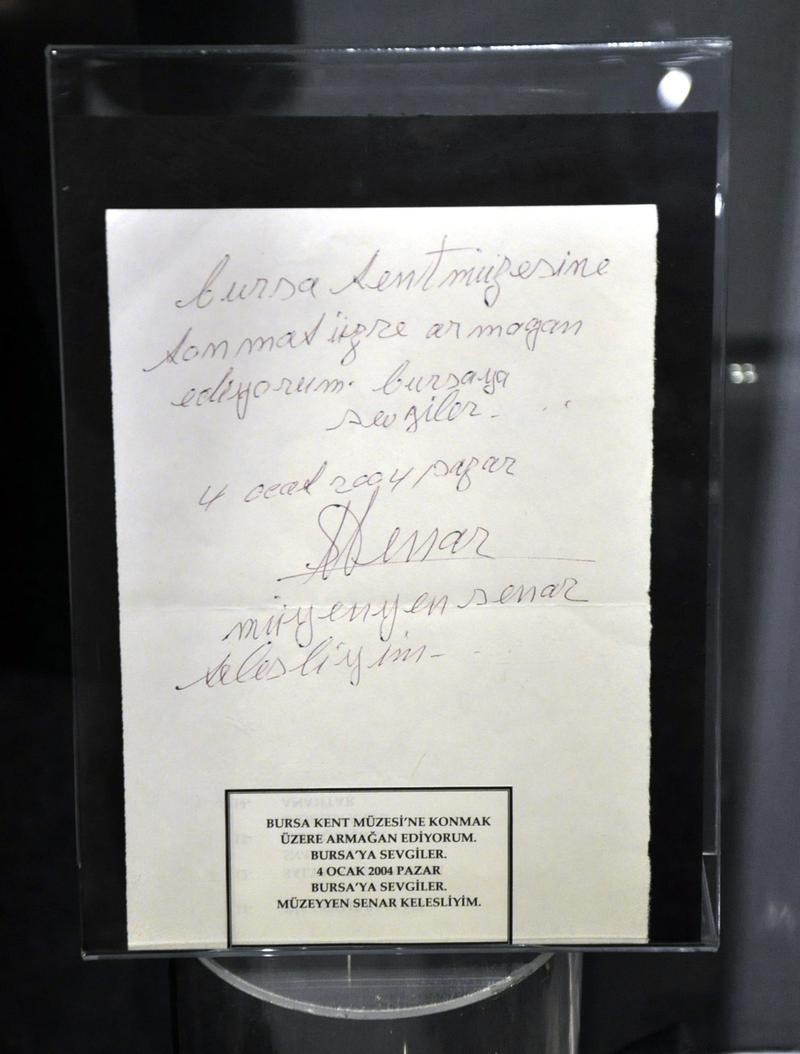 bursa kent müzesine
konmak üzre armağan
ediyorum. bursaya
sevgiler.
4 ocak 2004 pazar
Senar
müzeyyen senar
kelesliyim.
BURSA KENT MÜZESİ'NE KONMAK
ÜZERE ARMAĞAN EDİYORUM.
BURSA'YA SEVGİLER.
4 OCAK 2004 PAZAR
BURSA'YA SEVGİLER.
MÜZEYYEN SENAR KELESLİYİM.